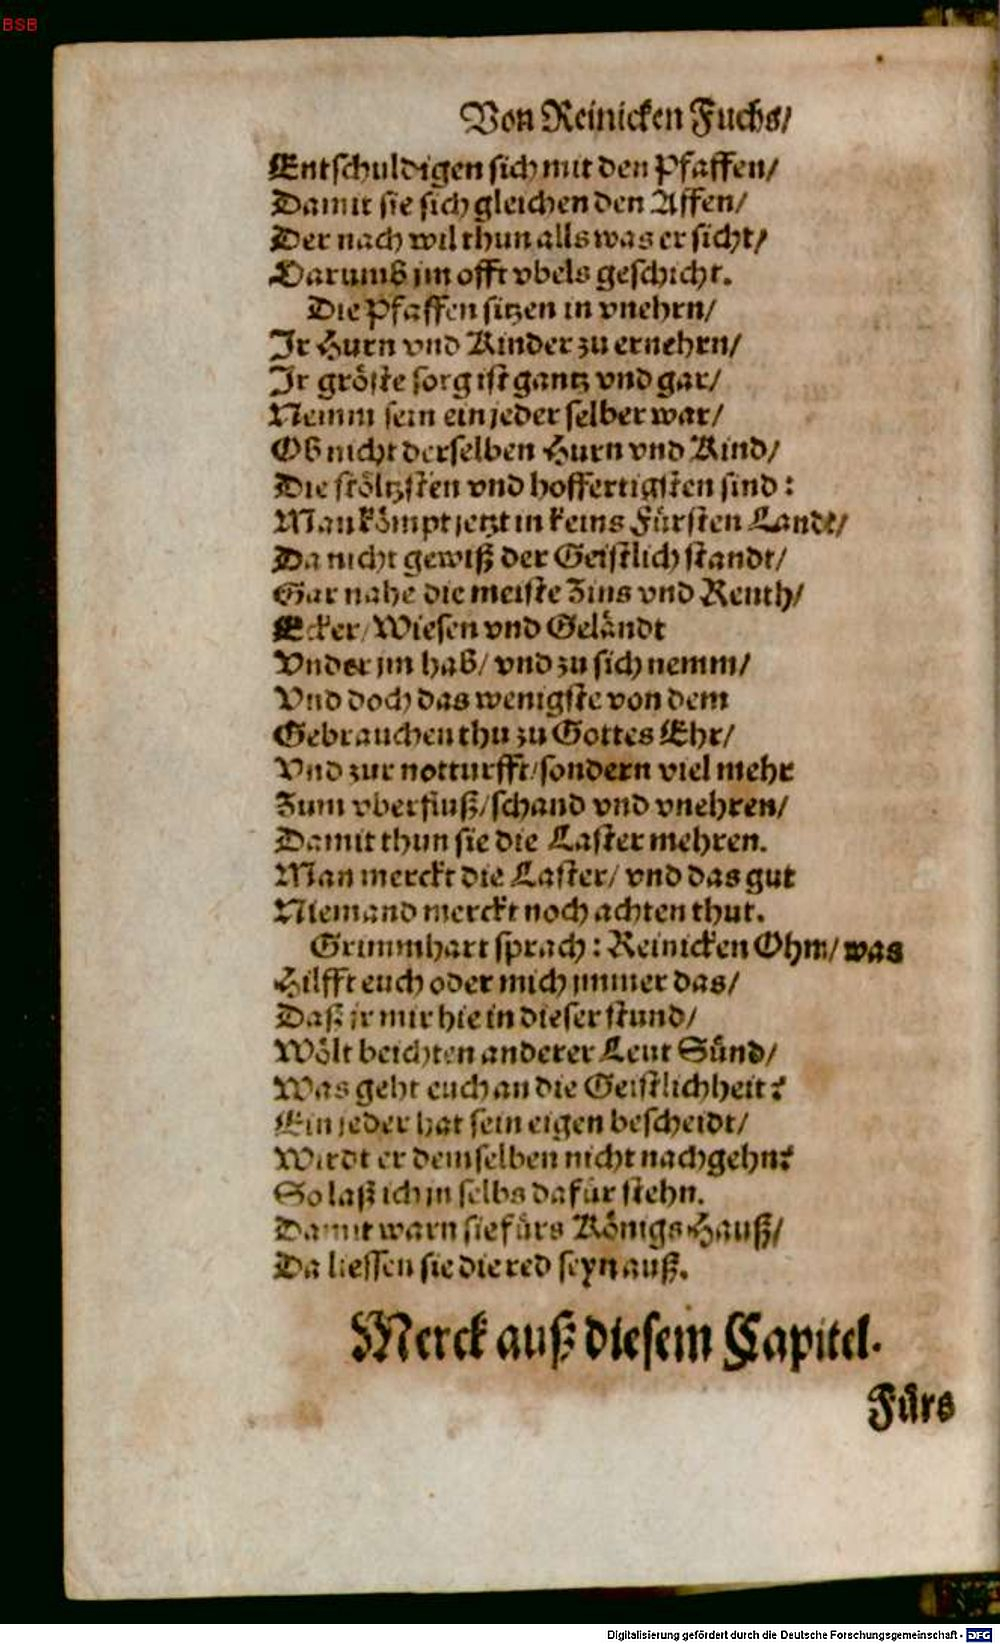 BSB
Von Reinicken Fuchs/
Entschuldigen sich mit den Pfaffen/
Damit sie sich gleichen den Affen/
Der nach wil thun alls was er sicht/
Darumb jm offt vbels geschicht.
Die Pfaffen sitzen in vnehrn/
Ir Hurn vnd Kinder zu ernehrn/
Ir gröste sorg ist gantz vnd gar/
Nemm sein ein jeder selber war/
Ob nicht derselben Hurn vnd Kind/
Die stöltzsten vnd hoffertigsten sind:
Man kömpt jetzt in keins Fürsten Landt/
Da nicht gewiß der Geistlich standt/
Gar nahe die meiste Zins vnd Renth/
Ecker/ Wiesen vnd Geländt
Vnder jm hab/ vnd zu sich nemm/
Vnd doch das wenigste von dem
Gebrauchen thu zu Gottes Ehr/
Vnd zur notturfft/ sondern viel mehr
Zum vberfluß/ schand vnd vnehren/
Damit thun sie die Laster mehren.
Man merckt die Laster/ vnd das gut
Niemand merckt noch achten thut.
Grimmhart sprach: Reinicken Ohm/ was
Hilfft euch oder mich jmmer das/
Daß jr mir hie in dieser stund/
Wölt beichten anderer Leut Sünd/
Was geht euch an die Geistlichheit?
Ein jeder hat sein eigen bescheidt/
Wirdt er demselben nicht nachgehn?
So laß ich jn selbs dafür stehn.
Damit warn sie fürs Königs Hauß/
Da liessen sie die red seyn auß.
Merck auß diesem Capitel.
Fürs
Digitalisierung gefördert durch die Deutsche Forschungsgemeinschaft - DFG